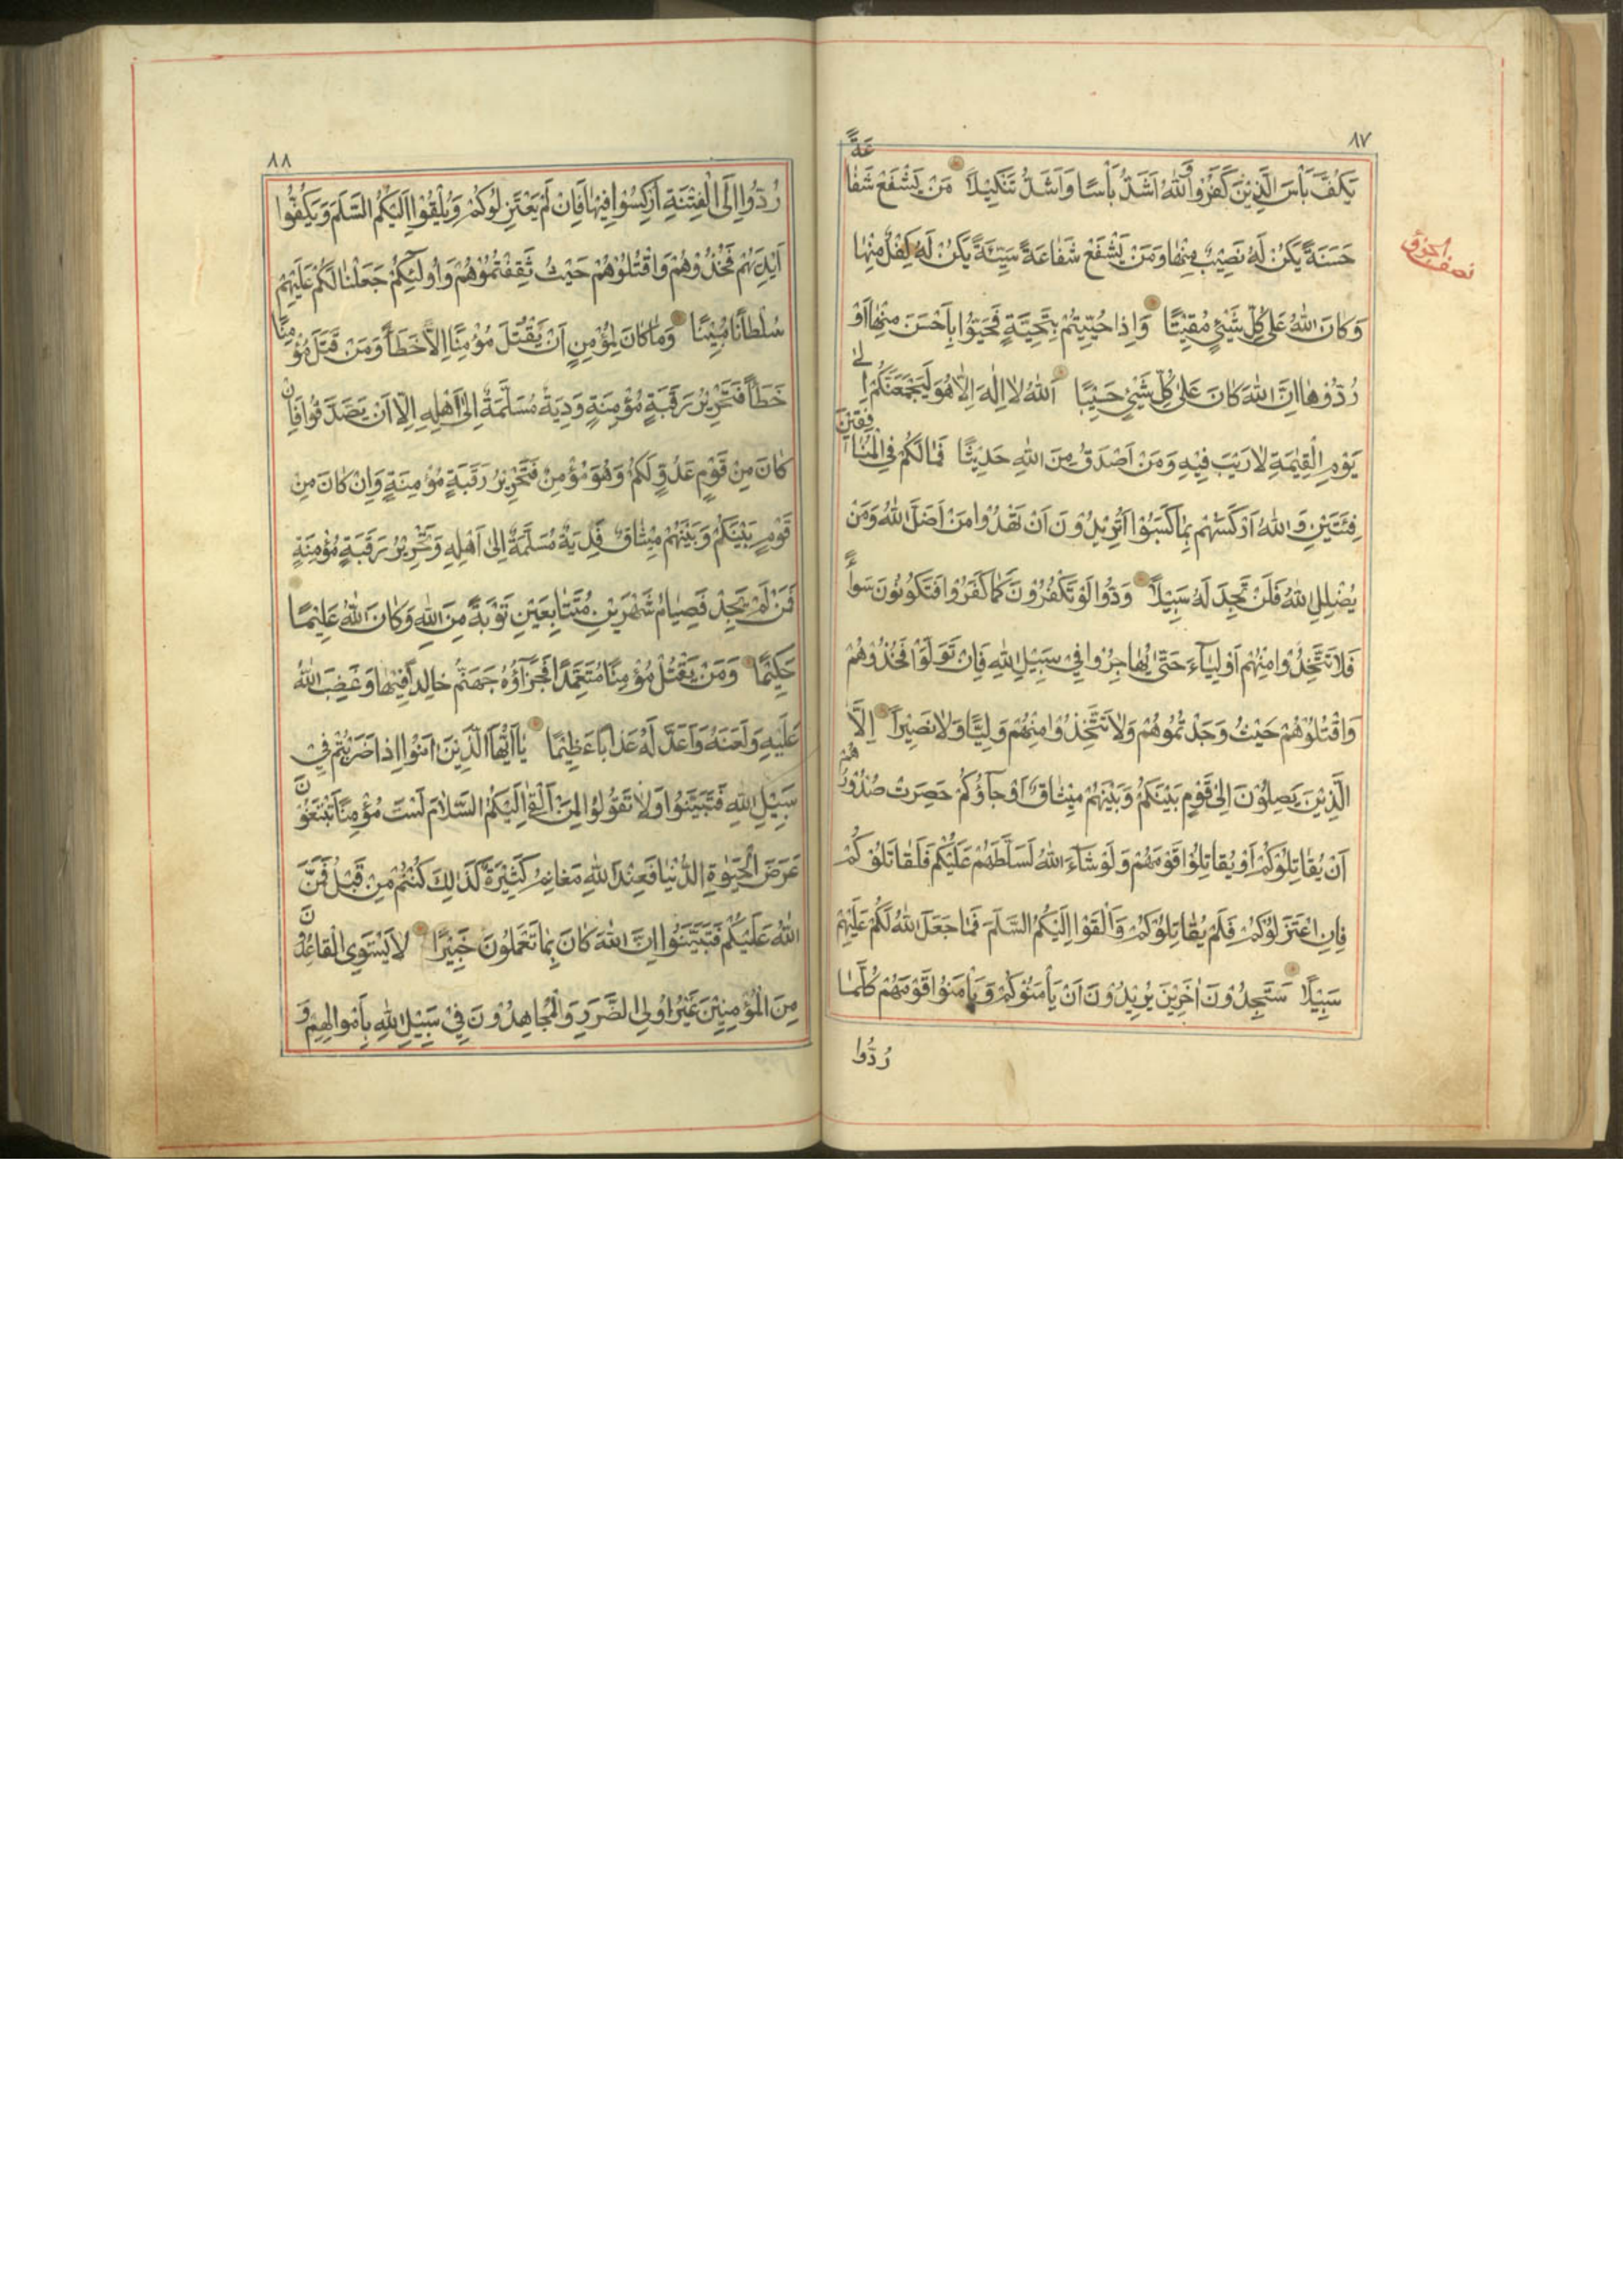 ٨٧
يَكُفَّ بَأْسَ الَّذِينَ كَفَرُوا وَاللّٰهُ اَشَدُّ بَأْسًا وَاَشَدُّ تَنْكِيلًا مَنْ يَشْفَعْ شَفَاعَةً
حَسَنَةً يَكُنْ لَهُ نَصِيبٌ مِنْهَا وَمَنْ يَشْفَعْ شَفَاعَةً سَيِّئَةً يَكُنْ لَهُ كِفْلٌ مِنْهَا
نصف الحزب
وَكَانَ اللّٰهُ عَلٰى كُلِّ شَيْئٍ مُقِيتًا وَاِذَا حُيِّيتُمْ بِتَحِيَّةٍ فَحَيُّوا بِاَحْسَنَ مِنْهَا اَوْ
رُدُّوهَا اِنَّ اللّٰهَ كَانَ عَلٰى كُلِّ شَيْئٍ حَسِيبًا اَللّٰهُ لَا اِلٰهَ اِلَّا هُوَ لَيَجْمَعَنَّكُمْ اِلٰى
يَوْمِ الْقِيٰمَةِ لَا رَيْبَ فِيهِ وَمَنْ اَصْدَقُ مِنَ اللّٰهِ حَدِيثًا فَمَا لَكُمْ فِي الْمُنَافِقِينَ
فِئَتَيْنِ وَاللّٰهُ اَرْكَسَهُمْ بِمَا كَسَبُوا اَتُرِيدُونَ اَنْ تَهْدُوا مَنْ اَضَلَّ اللّٰهُ وَمَنْ
يُضْلِلِ اللّٰهُ فَلَنْ تَجِدَ لَهُ سَبِيلًا وَدُّوا لَوْ تَكْفُرُونَ كَمَا كَفَرُوا فَتَكُونُونَ سَوَاءً
فَلَا تَتَّخِذُوا مِنْهُمْ اَوْلِيَاءَ حَتّٰى يُهَاجِرُوا فِي سَبِيلِ اللّٰهِ فَاِنْ تَوَلَّوْا فَخُذُوهُمْ
وَاقْتُلُوهُمْ حَيْثُ وَجَدْتُمُوهُمْ وَلَا تَتَّخِذُوا مِنْهُمْ وَلِيًّا وَلَا نَصِيرًا اِلَّا
الَّذِينَ يَصِلُونَ اِلٰى قَوْمٍ بَيْنَكُمْ وَبَيْنَهُمْ مِيثَاقٌ اَوْ جَاؤُكُمْ حَصِرَتْ صُدُورُهُمْ
اَنْ يُقَاتِلُوكُمْ اَوْ يُقَاتِلُوا قَوْمَهُمْ وَلَوْ شَاءَ اللّٰهُ لَسَلَّطَهُمْ عَلَيْكُمْ فَلَقَاتَلُوكُمْ
فَاِنِ اعْتَزَلُوكُمْ فَلَمْ يُقَاتِلُوكُمْ وَاَلْقَوْا اِلَيْكُمُ السَّلَمَ فَمَا جَعَلَ اللّٰهُ لَكُمْ عَلَيْهِمْ
سَبِيلًا سَتَجِدُونَ اٰخَرِينَ يُرِيدُونَ اَنْ يَأْمَنُوكُمْ وَيَأْمَنُوا قَوْمَهُمْ كُلَّمَا
رُدُّوا
٨٨
رُدُّوا اِلَى الْفِتْنَةِ اُرْكِسُوا فِيهَا فَاِنْ لَمْ يَعْتَزِلُوكُمْ وَيُلْقُوا اِلَيْكُمُ السَّلَمَ وَيَكُفُّوا
اَيْدِيَهُمْ فَخُذُوهُمْ وَاقْتُلُوهُمْ حَيْثُ ثَقِفْتُمُوهُمْ وَاُولٰئِكُمْ جَعَلْنَا لَكُمْ عَلَيْهِمْ
سُلْطَانًا مُبِينًا وَمَا كَانَ لِمُؤْمِنٍ اَنْ يَقْتُلَ مُؤْمِنًا اِلَّا خَطَأً وَمَنْ قَتَلَ مُؤْمِنًا
خَطَأً فَتَحْرِيرُ رَقَبَةٍ مُؤْمِنَةٍ وَدِيَةٌ مُسَلَّمَةٌ اِلٰى اَهْلِهِ اِلَّا اَنْ يَصَّدَّقُوا فَاِنْ
كَانَ مِنْ قَوْمٍ عَدُوٍّ لَكُمْ وَهُوَ مُؤْمِنٌ فَتَحْرِيرُ رَقَبَةٍ مُؤْمِنَةٍ وَاِنْ كَانَ مِنْ
قَوْمٍ بَيْنَكُمْ وَبَيْنَهُمْ مِيثَاقٌ فَدِيَةٌ مُسَلَّمَةٌ اِلٰى اَهْلِهِ وَتَحْرِيرُ رَقَبَةٍ مُؤْمِنَةٍ
فَمَنْ لَمْ يَجِدْ فَصِيَامُ شَهْرَيْنِ مُتَتَابِعَيْنِ تَوْبَةً مِنَ اللّٰهِ وَكَانَ اللّٰهُ عَلِيمًا
حَكِيمًا وَمَنْ يَقْتُلْ مُؤْمِنًا مُتَعَمِّدًا فَجَزَاؤُهُ جَهَنَّمُ خَالِدًا فِيهَا وَغَضِبَ اللّٰهُ
عَلَيْهِ وَلَعَنَهُ وَاَعَدَّ لَهُ عَذَابًا عَظِيمًا يَا اَيُّهَا الَّذِينَ اٰمَنُوا اِذَا ضَرَبْتُمْ فِي
سَبِيلِ اللّٰهِ فَتَبَيَّنُوا وَلَا تَقُولُوا لِمَنْ اَلْقٰى اِلَيْكُمُ السَّلَامَ لَسْتَ مُؤْمِنًا تَبْتَغُونَ
عَرَضَ الْحَيٰوةِ الدُّنْيَا فَعِنْدَ اللّٰهِ مَغَانِمُ كَثِيرَةٌ كَذٰلِكَ كُنْتُمْ مِنْ قَبْلُ فَمَنَّ
اللّٰهُ عَلَيْكُمْ فَتَبَيَّنُوا اِنَّ اللّٰهَ كَانَ بِمَا تَعْمَلُونَ خَبِيرًا لَا يَسْتَوِي الْقَاعِدُونَ
مِنَ الْمُؤْمِنِينَ غَيْرُ اُولِي الضَّرَرِ وَالْمُجَاهِدُونَ فِي سَبِيلِ اللّٰهِ بِاَمْوَالِهِمْ وَ